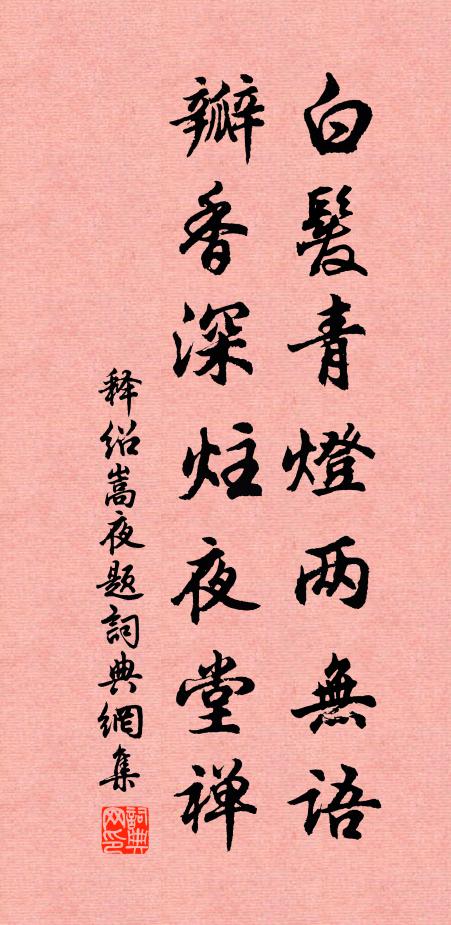 白髮青燈两無語
瓣香深炷夜堂禅
释绍嵩夜题詞典網集
詞典网印